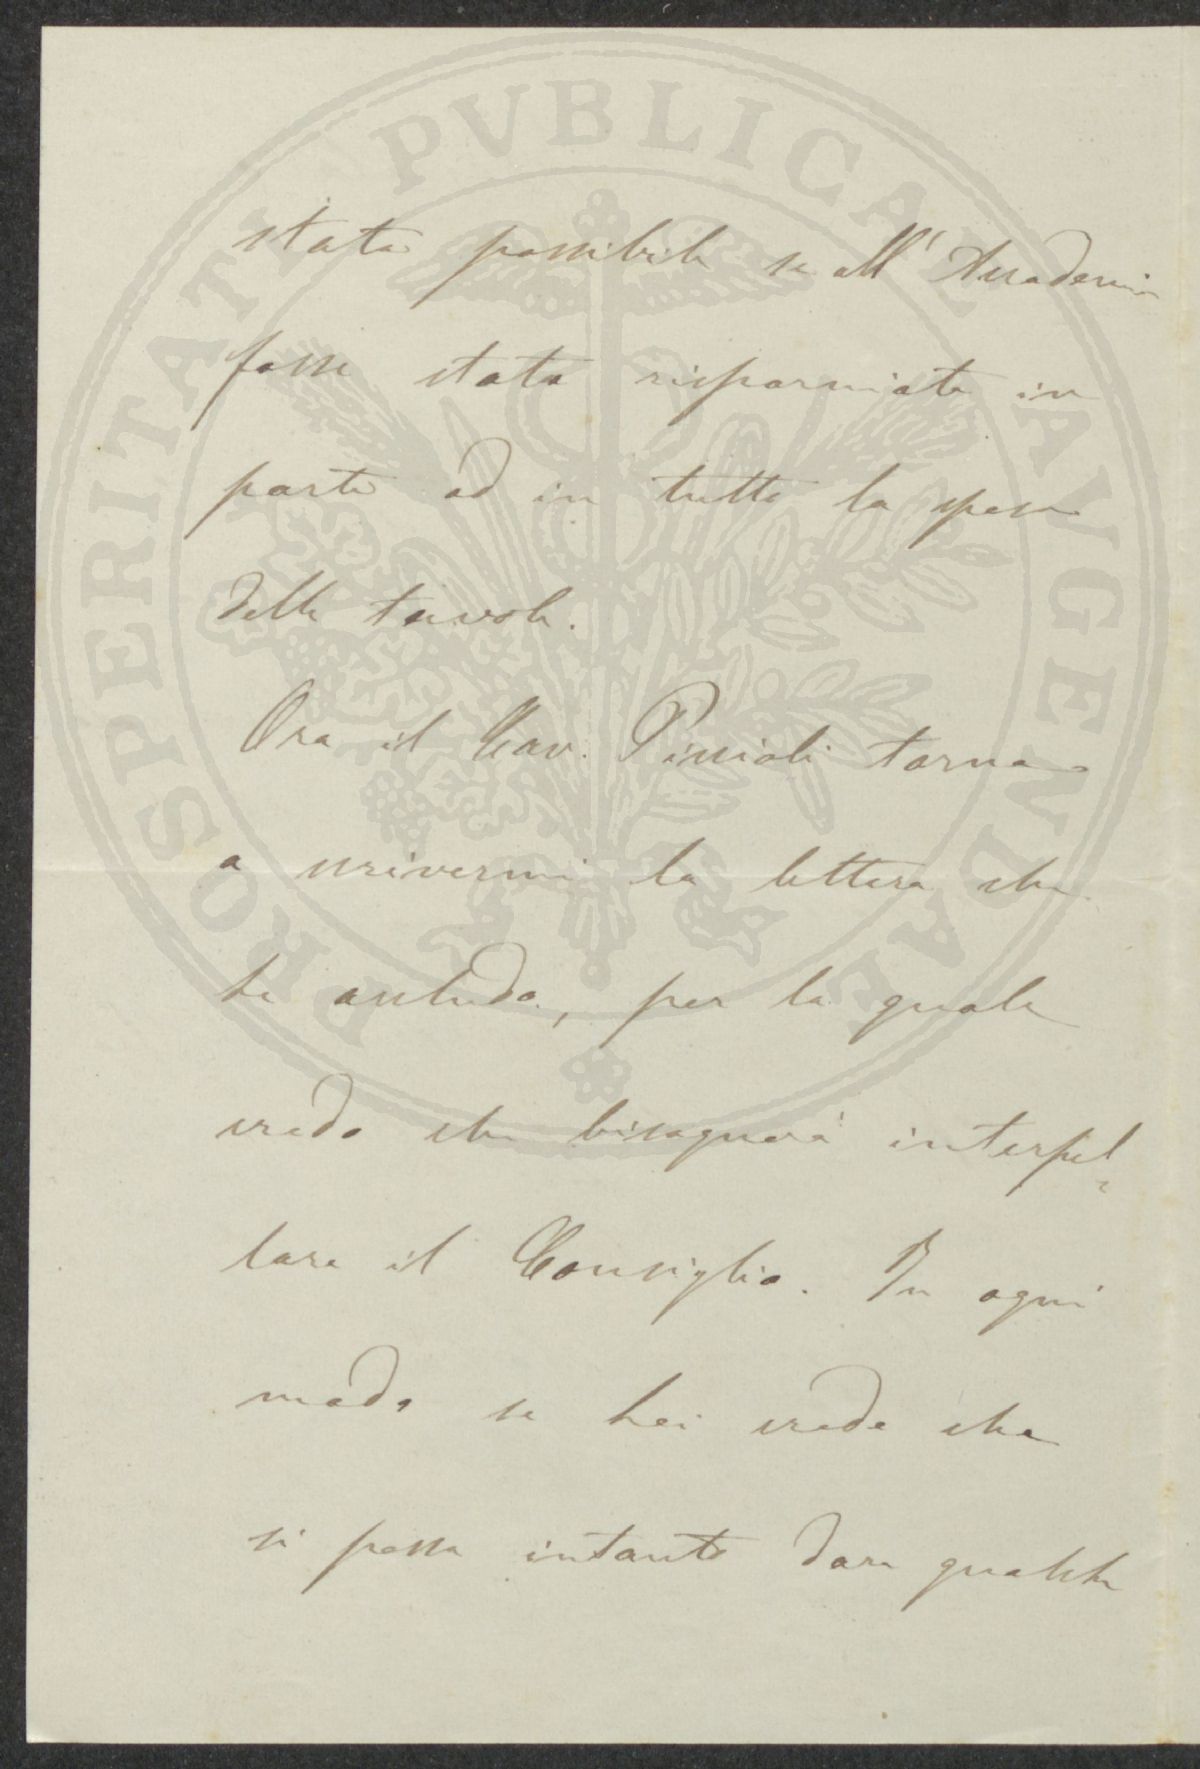 PROSPERITATI PVBLICAE AVGENDAE
stata possibile se all'Accademia
fosse stata risparmiata in
parte od in tutto la spesa
delle tavole.
Ora il Cav. torna
a scrivermi la lettera che
le acchiudo, per la quale
credo che bisognerà interpel-
lare il Consiglio. In ogni
modo se Lei crede che
si possa intanto dare qualche